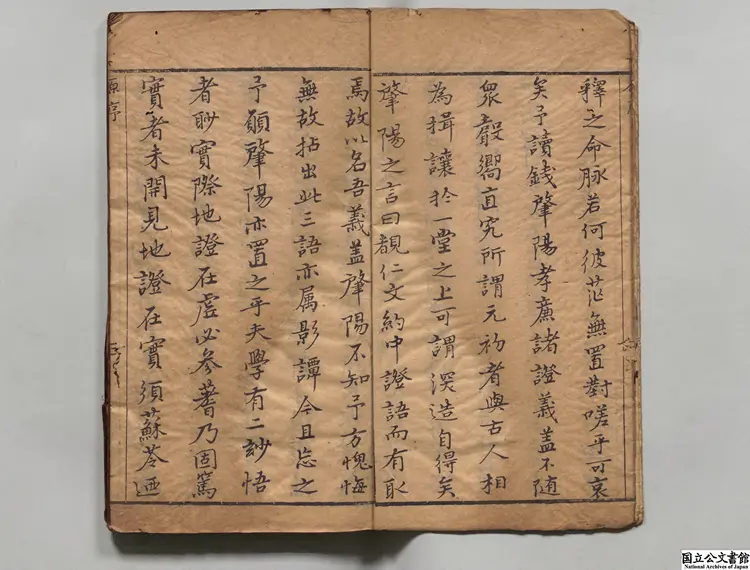 釋之命脉若何彼茫無置對嗟乎可哀
矣予讀錢肇陽孝廉諸證義蓋不随
衆觳嚮直究所謂元初者與古人相
為揖讓於一堂之上可謂深造自得矣
肇陽之言曰覩仁文約中證語而有耿
焉故以名吾義盖肇陽不知予方愧悔
無故拈出此三語亦属影譚今且忘之
予願肇陽亦置之乎夫學有二妙悟
者眇實際地證在虚必参蓍乃固篤
實者未開見地證在實須蘇苓廼
原序
国立公文書館
National Archives of Japan